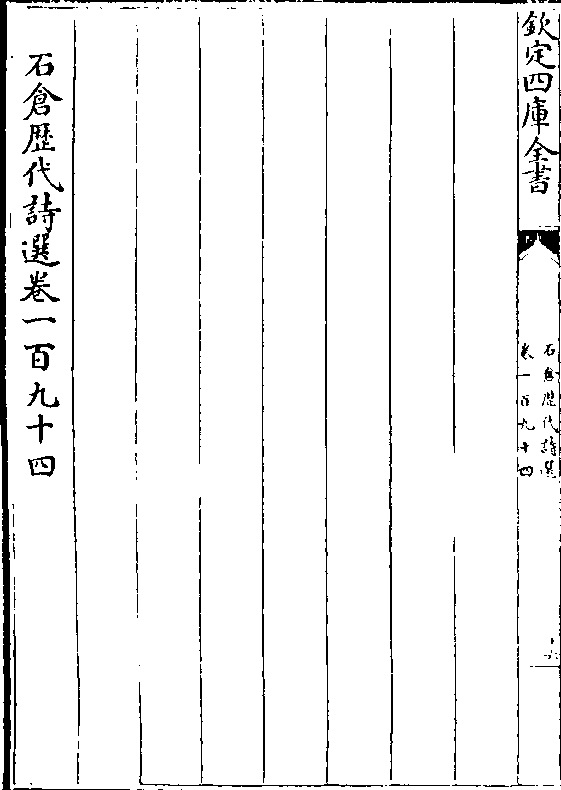 欽定四庫全書
石倉歷代詩選
卷一百九十四
十六
石倉歷代詩選卷一百九十四